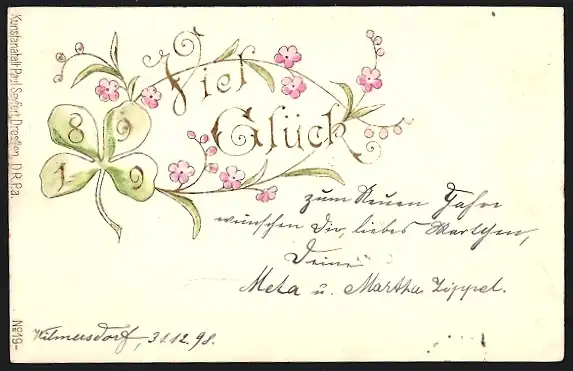 Viel
Glück
8 9
1 9
zum Neuen Jahre
wünschen Dir, liebes Martchen,
Deine
Meta u. Martha Zippel.
Wilmersdorf, 31.12.98.
Kunstanstalt Paul Seifert, Dresden. D.R.P.a.
No 19-